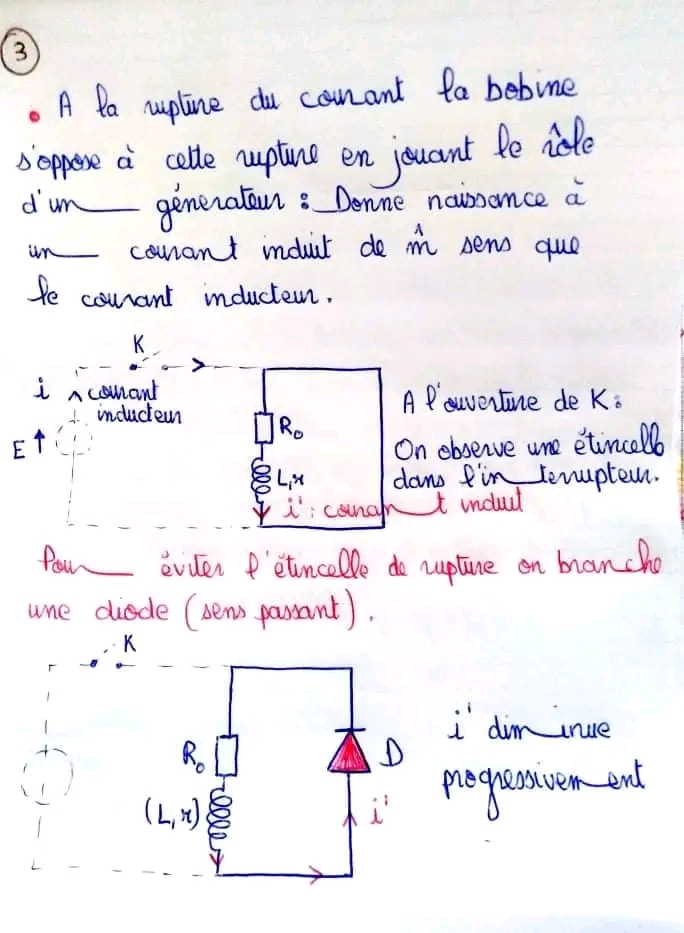 3
• A la rupture du courant la bobine
s'oppose à cette rupture en jouant le rôle
d'un générateur : Donne naissance à
un courant induit de m̂ sens que
le courant inducteur.
K
i
courant
inducteur
E
R₀
L,r
i' : courant induit
A l'ouverture de K :
On observe une étincelle
dans l'interrupteur.
Pour éviter l'étincelle de rupture on branche
une diode (sens passant).
K
R₀
(L,r)
D
i'
i' diminue
progressivement